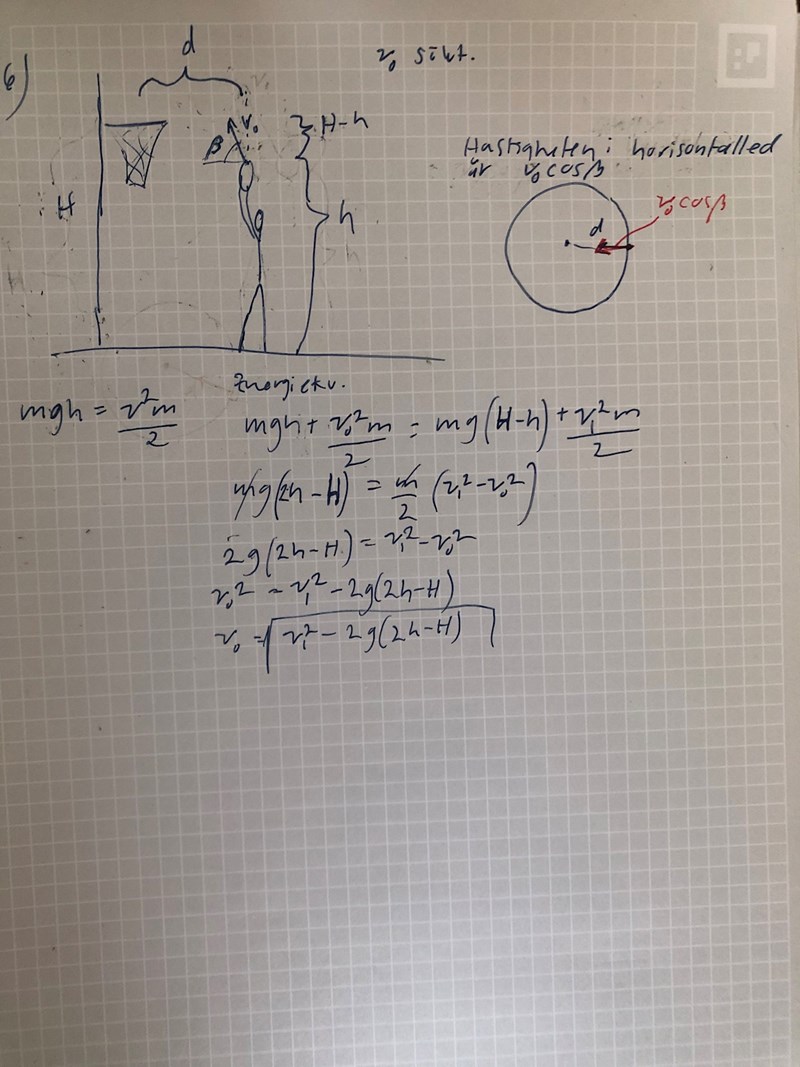 6)
d
v₀ sökt.
v₀
H-h
β
H
h
Hastigheten i horisontalled
är v₀cosβ
v₀cosβ
d
Energiekv.
mgh = v²m/2
mgh + v₀²m/2 = mg(H-h) + v₁²m/2
mg(2h-H) = m/2 (v₁²-v₀²)
2g(2h-H) = v₁²-v₀²
v₀² = v₁² - 2g(2h-H)
v₀ = √(v₁² - 2g(2h-H))